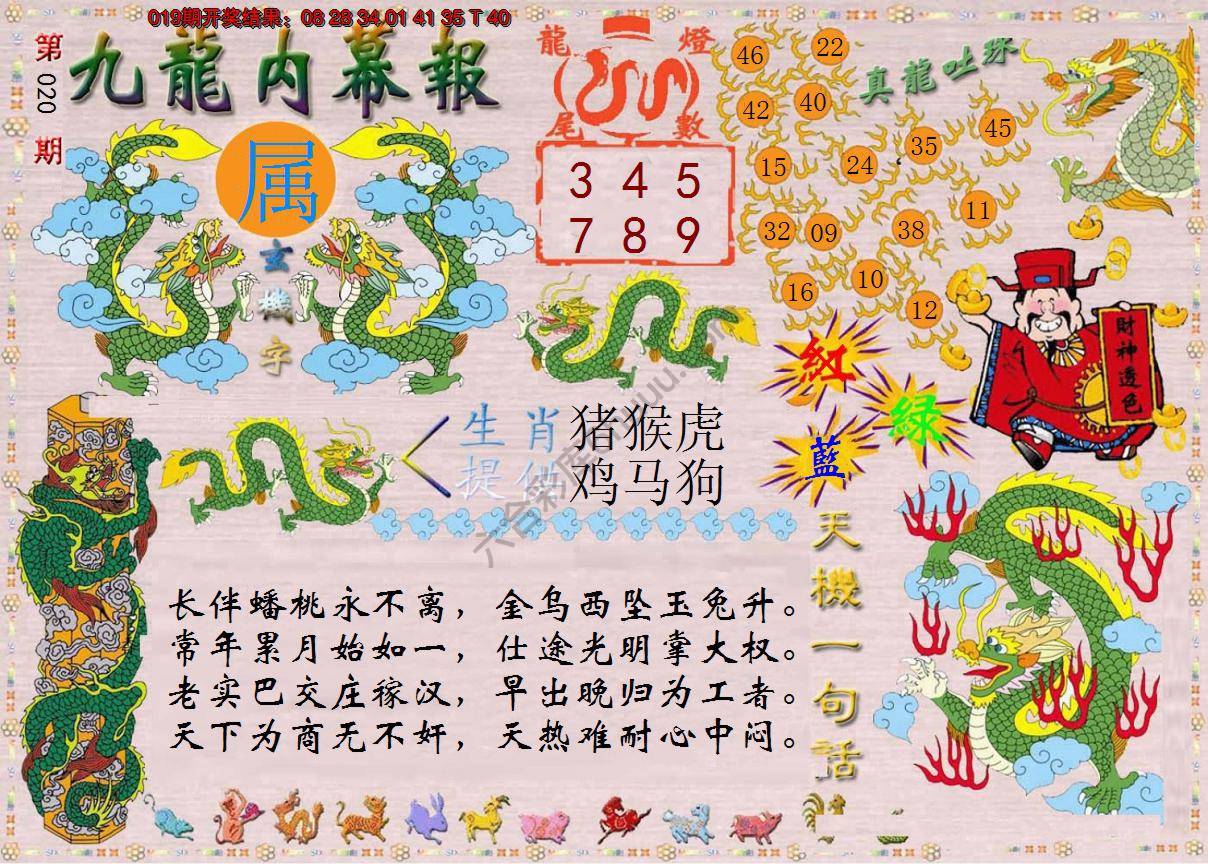 019期开奖结果：08 28 34 01 41 35 T 40
第020期
九龍内幕報
属
玄機字
龍燈
尾數
3 4 5
7 8 9
真龍吐珠
46 22
42 40
15 24 35 45
32 09 38 11
16 10 12
財神透色
紅
綠
藍
生肖 猪猴虎
提供 鸡马狗
天機一句話
长伴蟠桃永不离，金乌西坠玉兔升。
常年累月始如一，仕途光明掌大权。
老实巴交庄稼汉，早出晚归为工者。
天下为商无不奸，天热难耐心中闷。